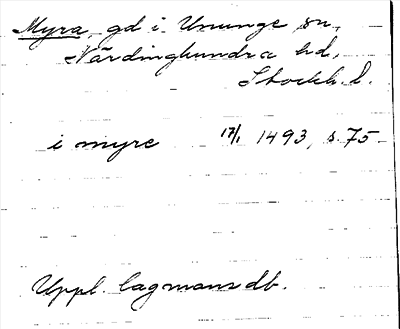 Myra, gd i Ununge sn,
Närdinghundra hd,
Stockh. l.
i myre 17/1 1493, s. 75
Uppl. lagmansdb.